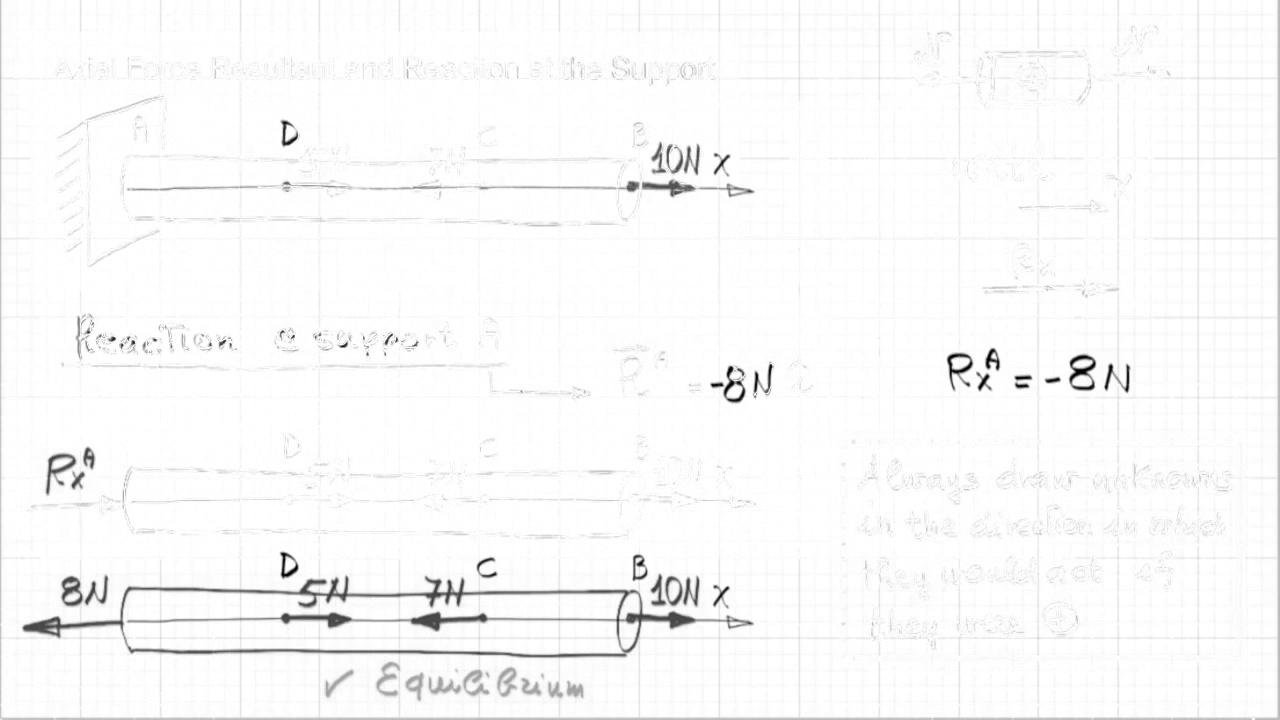 Axial Force Resultant and Reaction at the Support
N N
A D C B
5N 7N 10N x
x
Rx
Reaction @ support A
R^A = -8N Rx^A = -8N
D C B
Rx^A 5N 7N 10N x
Always draw unknowns
in the direction in which
they would act if
they were +
D C B
8N 5N 7N 10N x
✓ Equilibrium